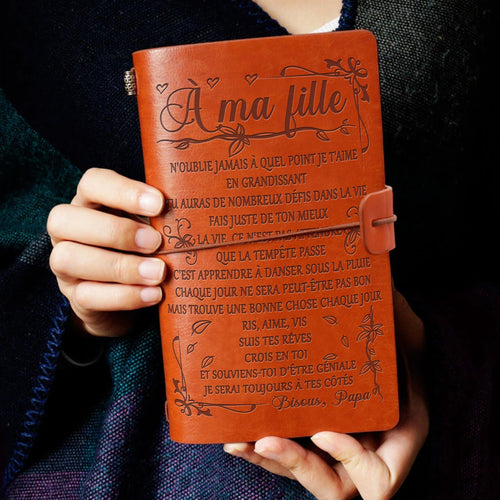 À ma fille
N'OUBLIE JAMAIS À QUEL POINT JE T'AIME
EN GRANDISSANT
TU AURAS DE NOMBREUX DÉFIS DANS LA VIE
FAIS JUSTE DE TON MIEUX
LA VIE, CE N'EST PAS
QUE LA TEMPÊTE PASSE
C'EST APPRENDRE À DANSER SOUS LA PLUIE
CHAQUE JOUR NE SERA PEUT-ÊTRE PAS BON
MAIS TROUVE UNE BONNE CHOSE CHAQUE JOUR
RIS, AIME, VIS
SUIS TES RÊVES
CROIS EN TOI
ET SOUVIENS-TOI D'ÊTRE GÉNIALE
JE SERAI TOUJOURS À TES CÔTÉS
Bisous, Papa